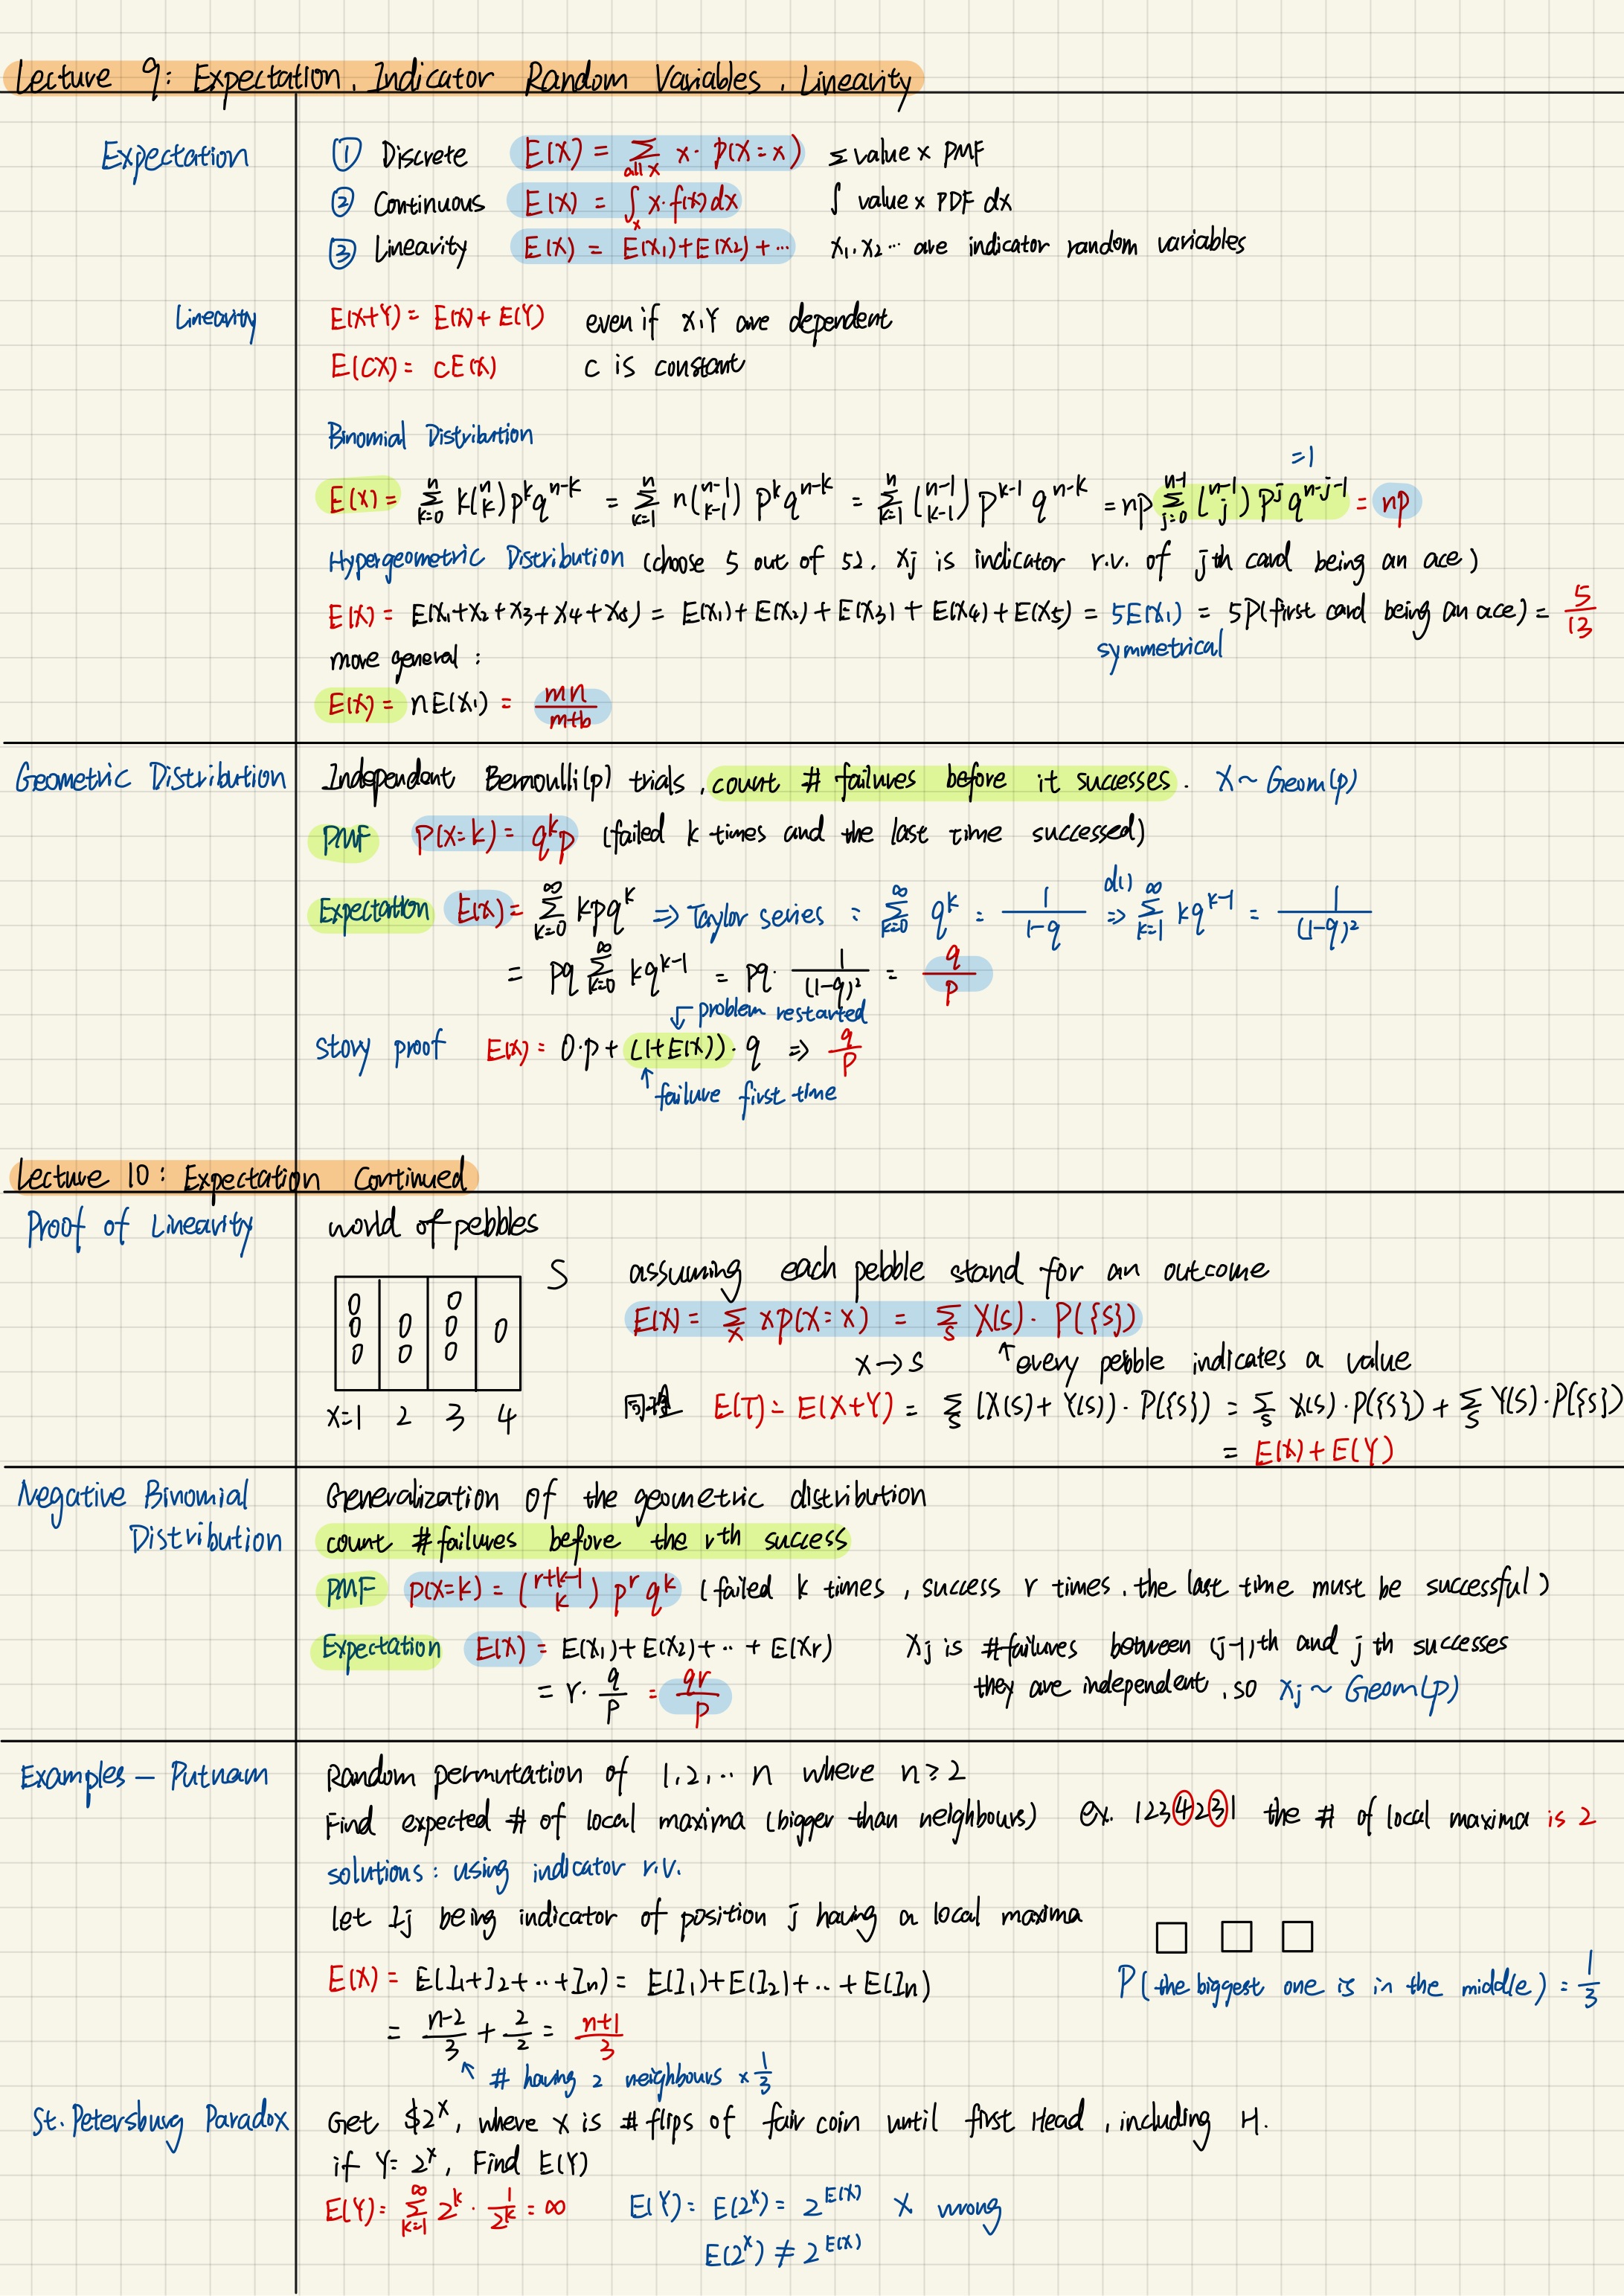 Lecture 9: Expectation, Indicator Random Variables, Linearity
Expectation
① Discrete E(X) = Σ_{all x} x · P(X=x) Σ value x PMF
② Continuous E(X) = ∫_x x·f(x)dx ∫ value x PDF dx
③ Linearity E(X) = E(X₁)+E(X₂)+··· X₁,X₂··· are indicator random variables
Linearity
E(X+Y) = E(X)+E(Y) even if X,Y are dependent
E(CX) = cE(X) C is constant
Binomial Distribution
=1
E(X) = Σ_{k=0}^{n} k(n k)p^k q^{n-k} = Σ_{k=1}^{n} n(n-1 k-1) p^k q^{n-k} = Σ_{k=1}^{n} (n-1 k-1) p^{k-1} q^{n-k} = np Σ_{j=0}^{n-1} (n-1 j) p^j q^{n-j-1} = np
Hypergeometric Distribution (choose 5 out of 52. Xj is indicator r.v. of jth card being an ace)
E(X) = E(X₁+X₂+X₃+X₄+X₅) = E(X₁)+E(X₂)+E(X₃)+E(X₄)+E(X₅) = 5E(X₁) = 5P(first card being an ace) = 5/13
symmetrical
more general :
E(X) = nE(X₁) = mn/(m+b)
Geometric Distribution
Independent Bernoulli(p) trials, count # failures before it successes. X ~ Geom(p)
PMF P(X=k) = q^k p (failed k times and the last time successed)
Expectation E(X) = Σ_{k=0}^{∞} kpq^k => Taylor series : Σ_{k=0}^{∞} q^k = 1/(1-q) d() => Σ_{k=1}^{∞} kq^{k-1} = 1/(1-q)²
= pq Σ_{k=0}^{∞} kq^{k-1} = pq · 1/(1-q)² = q/p
problem restarted
story proof E(X) = 0·p + (1+E(X))·q => q/p
↑ failure first time
Lecture 10: Expectation Continued
Proof of Linearity
world of pebbles
S
assuming each pebble stand for an outcome
E(X) = Σ_x xp(X=x) = Σ_s X(s) · P({s})
x → s ↑every pebble indicates a value
x=1 2 3 4
同理 E(T) = E(X+Y) = Σ_s (X(s)+Y(s)) · P({s}) = Σ_s X(s)·P({s}) + Σ_s Y(s)·P({s})
= E(X)+E(Y)
Negative Binomial Distribution
Generalization of the geometric distribution
count # failures before the rth success
PMF P(X=k) = (r+k-1 k) p^r q^k (failed k times, success r times, the last time must be successful)
Expectation E(X) = E(X₁)+E(X₂)+··+E(Xr) Xj is #failures between (j-1)th and jth successes
= r· q/p = qr/p they are independent, so Xj ~ Geom(p)
Examples — Putnam
Random permutation of 1,2,·· n where n ≥ 2
Find expected # of local maxima (bigger than neighbours) ex. 1234231 the # of local maxima is 2
solutions: using indicator r.v.
let Ij being indicator of position j having a local maxima
E(X) = E(I₁+I₂+··+In) = E(I₁)+E(I₂)+··+E(In)
P(the biggest one is in the middle) = 1/3
= (n-2)/3 + 2/2 = (n+1)/3
↖ # having 2 neighbours x 1/3
St. Petersburg Paradox
Get $2^X, where X is # flips of fair coin until first Head, including H.
if Y = 2^X, Find E(Y)
E(Y) = Σ_{k=1}^{∞} 2^k · 1/2^k = ∞ E(Y) = E(2^X) = 2^{E(X)} X wrong
E(2^X) ≠ 2^{E(X)}